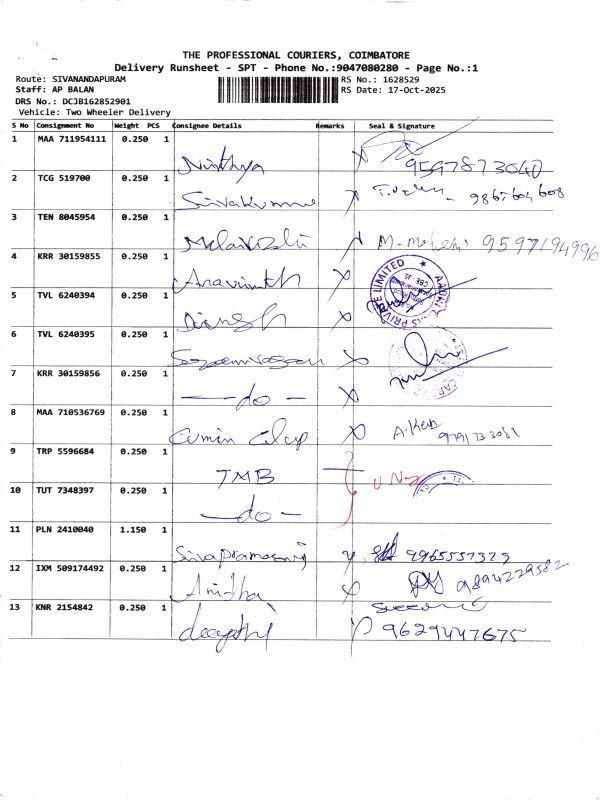 THE PROFESSIONAL COURIERS, COIMBATORE
Delivery Runsheet - SPT - Phone No.:9047080280 - Page No.:1
Route: SIVANANDAPURAM
RS No.: 1628529
Staff: AP BALAN
RS Date: 17-Oct-2025
DRS No.: DCJB162852901
Vehicle: Two Wheeler Delivery
S No Consignment No Weight PCS Consignee Details Remarks Seal & Signature
1 MAA 711954111 0.250 1 Nithya 9597873040
2 TCG 519700 0.250 1 Sivakumar
3 TEN 8045954 0.250 1 9597194996
4 KRR 30159855 0.250 1 Aravinth
5 TVL 6240394 0.250 1 Dinesh
6 TVL 6240395 0.250 1
7 KRR 30159856 0.250 1 -do-
8 MAA 710536769 0.250 1 9791733081
9 TRP 5596684 0.250 1 TMB
10 TUT 7348397 0.250 1 -do-
11 PLN 2410040 1.150 1 9965557323
12 IXM 509174492 0.250 1 Anitha 9894229582
13 KNR 2154842 0.250 1 9629447675